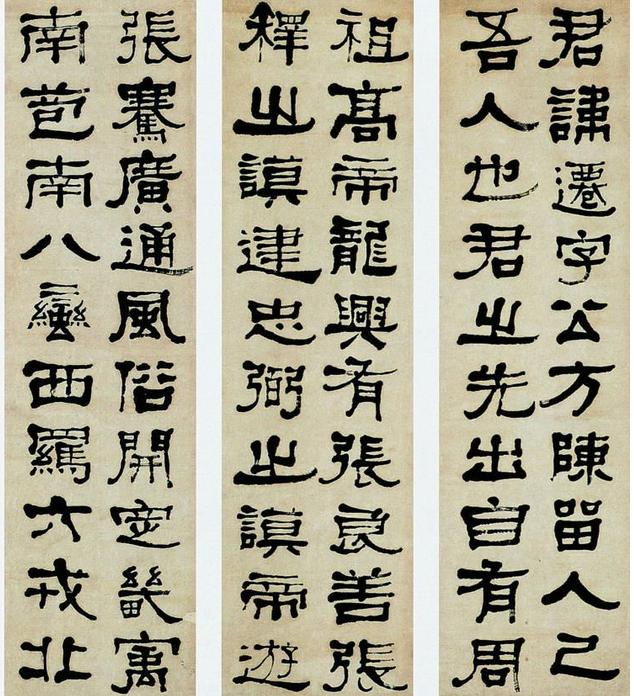 君諱遷字公方陳留人己
吾人也君之先出自有周
祖高帝龍興有張良善張
釋之謨建忠弼之謨帝遊
張騫廣通風俗開定畿寓
南苞南八蠻西羈六戎北